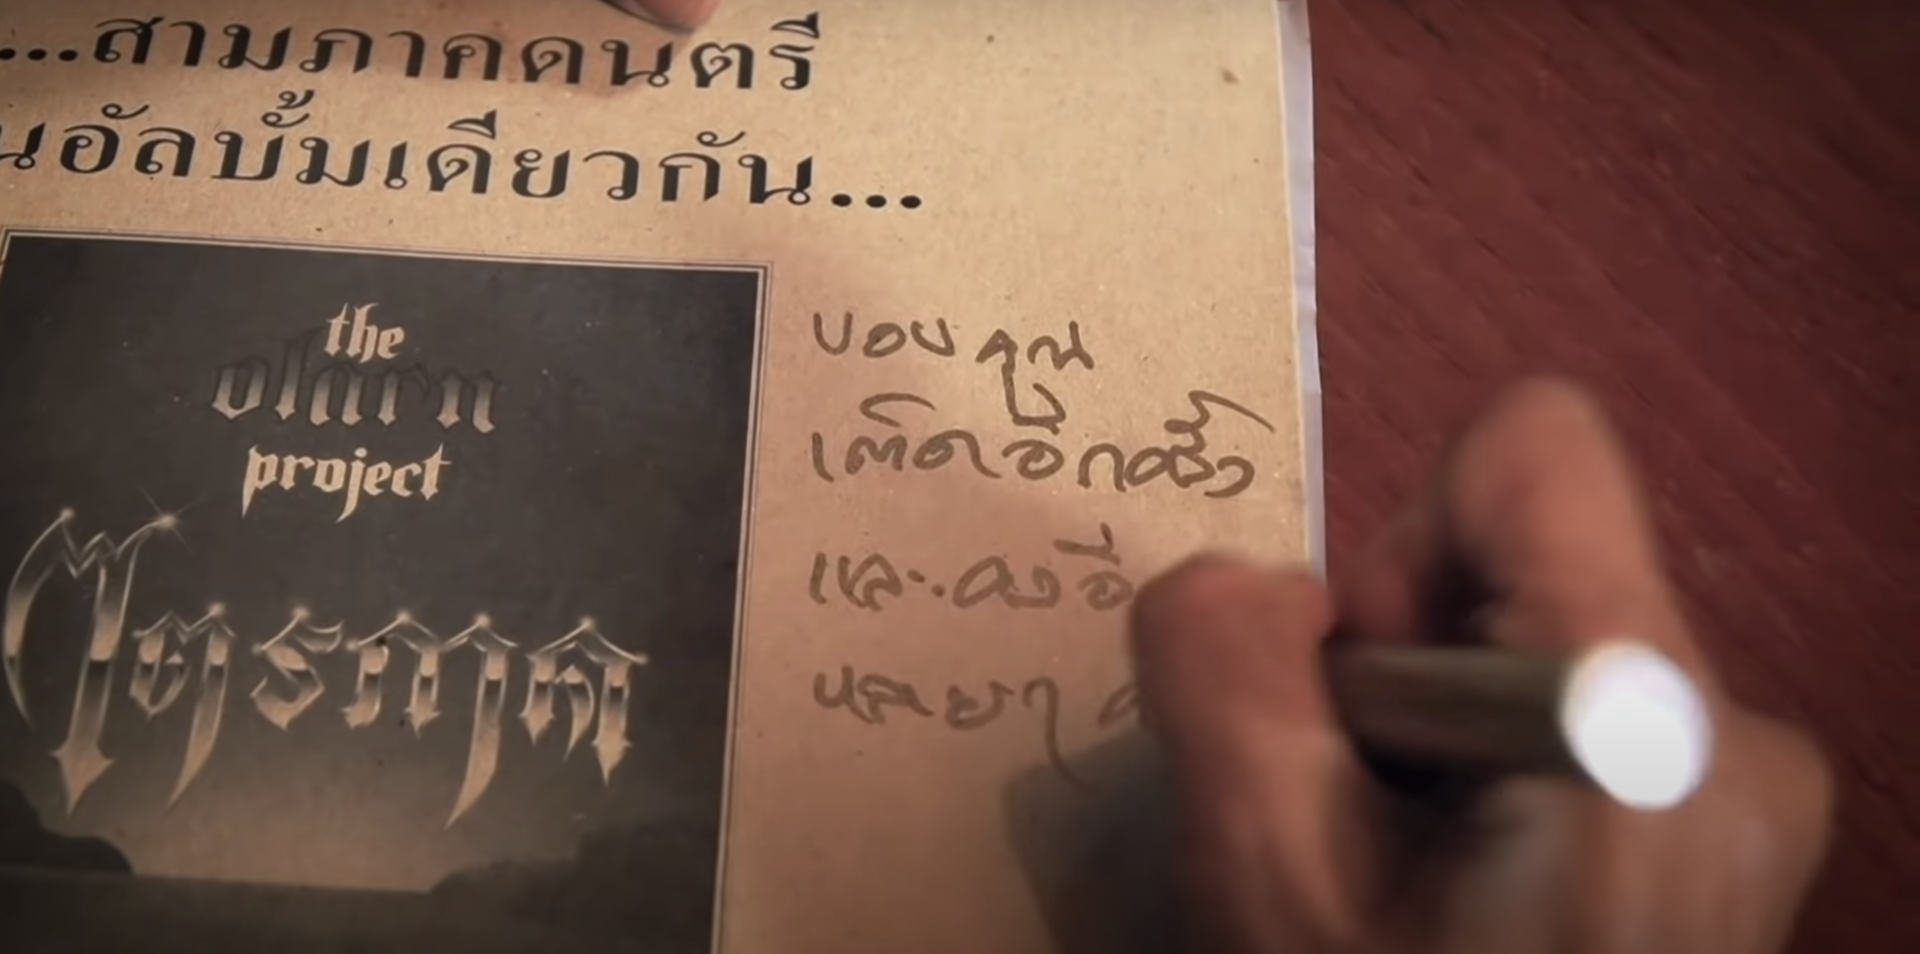 ...สามภาคดนตรี
นอัลบั้มเดียวกัน...
the
olarn
project
ไตรภาค
ขอบคุณ
เต๊ดอีกครั้ง
และคงอี
หลายๆ